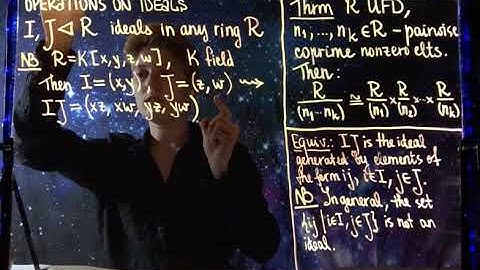 OPERATIONS ON IDEALS
I, J ◁ R ideals in any ring R
NB R=K[x,y,z,w], K field
Then I=(x,y) J=(z,w) ⇝
IJ=(xz, xw, yz, yw)
Thrm R UFD,
n₁,…, nₖ ∈ R - pairwise
coprime nonzero elts.
Then:
R/(n₁⋯nₖ) ≅ R/(n₁) × R/(n₂) × ⋯ × R/(nₖ)
Equiv.: IJ is the ideal
generated by elements of
the form ij, i∈I, j∈J.
NB In general, the set
{ij | i∈I, j∈J} is not an
ideal.